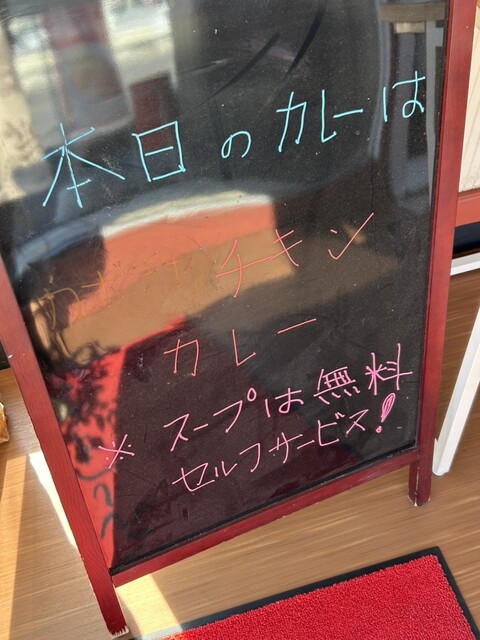 本日のカレーは
チキン
カレー
※スープは無料
セルフサービス!